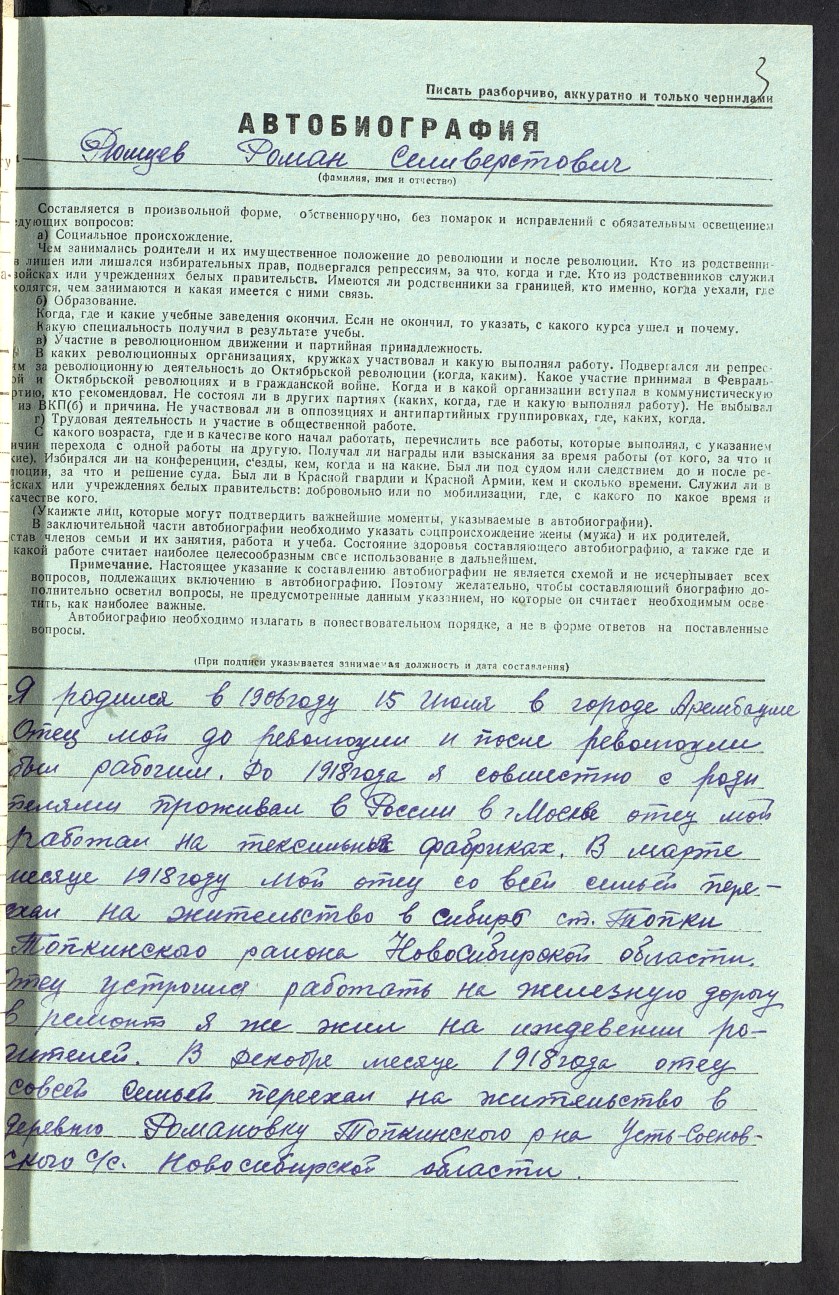 3
Писать разборчиво, аккуратно и только чернилами
АВТОБИОГРАФИЯ
Роман Селиверстович
(фамилия, имя и отчество)
Составляется в произвольной форме, обственноручно, без помарок и исправлений с обязательным освещением
едующих вопросов:
а) Социальное происхождение.
Чем занимались родители и их имущественное положение до революции и после революции. Кто из родственни-
в лишен или лишался избирательных прав, подвергался репрессиям, за что, когда и где. Кто из родственников служил
войсках или учреждениях белых правительств. Имеются ли родственники за границей, кто именно, когда уехали, где
ходятся, чем занимаются и какая имеется с ними связь.
б) Образование.
Когда, где и какие учебные заведения окончил. Если не окончил, то указать, с какого курса ушел и почему.
Какую специальность получил в результате учебы.
в) Участие в революционном движении и партийная принадлежность.
В каких революционных организациях, кружках участвовал и какую выполнял работу. Подвергался ли репрес-
ям за революционную деятельность до Октябрьской революции (когда, каким). Какое участие принимал в Февраль-
ой и Октябрьской революциях и в гражданской войне. Когда и в какой организации вступал в коммунистическую
ртию, кто рекомендовал. Не состоял ли в других партиях (каких, когда, где и какую выполнял работу). Не выбывал
из ВКП(б) и причина. Не участвовал ли в оппозициях и антипартийных группировках, где, каких, когда.
г) Трудовая деятельность и участие в общественной работе.
С какого возраста, где и в качестве кого начал работать, перечислить все работы, которые выполнял, с указанием
ичин перехода с одной работы на другую. Получал ли награды или взыскания за время работы (от кого, за что и
кие). Избирался ли на конференции, с'езды, кем, когда и на какие. Был ли под судом или следствием до и после ре-
люции, за что и решение суда. Был ли в Красной гвардии и Красной Армии, кем и сколько времени. Служил ли в
йсках или учреждениях белых правительств: добровольно или по мобилизации, где, с какого по какое время и
качестве кого.
(Укажите лиц, которые могут подтвердить важнейшие моменты, указываемые в автобиографии).
В заключительной части автобиографии необходимо указать соцпроисхождение жены (мужа) и их родителей.
став членов семьи и их занятия, работа и учеба. Состояние здоровья составляющего автобиографию, а также где и
какой работе считает наиболее целесообразным свое использование в дальнейшем.
Примечание. Настоящее указание к составлению автобиографии не является схемой и не исчерпывает всех
вопросов, подлежащих включению в автобиографию. Поэтому желательно, чтобы составляющий биографию до-
полнительно осветил вопросы, не предусмотренные данным указанием, но которые он считает необходимым осве-
тить, как наиболее важные.
Автобиографию необходимо излагать в повествовательном порядке, а не в форме ответов на поставленные
вопросы.
(При подписи указывается занимаемая должность и дата составления)
Я родился в 1906 году 15 Июля в городе
Отец мой до революции и после революции
был рабочим. До 1918 года я совместно с роди
телями проживал в России в г Москве отец мой
работал на тексильных фабриках. В марте
месяце 1918 году мой отец со всей семьей пере-
ехал на жительство в Сибирь ст. Топки
Топкинского района Новосибирской области.
Отец устроился работать на железную дорогу
в ремонт я же жил на иждевении ро-
дителей. В декабре месяце 1918 года отец
совсей семьей переехал на жительство в
деревню Романовку Топкинского р на Усть-Соснов-
ского с/с. Новосибирской области.